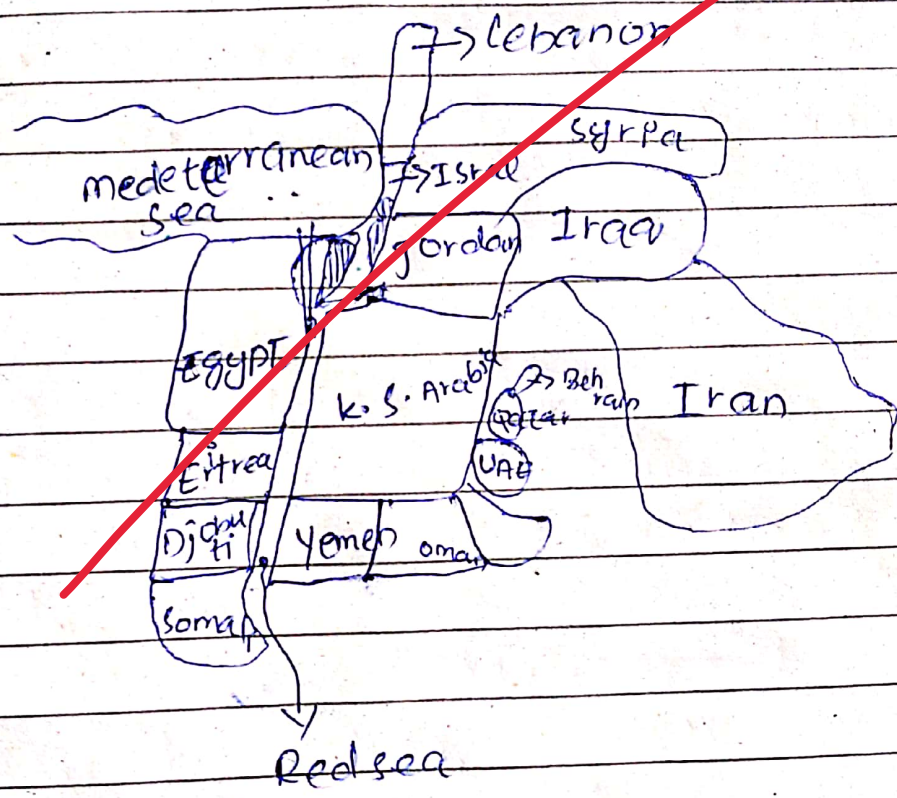 Lebanon
Syria
medeterranean
sea
Isral
Jordan
Iraq
Egypt
K. S. Arabia
Beh
rain
Qatar
Iran
UAE
Eritrea
Djibu
ti
Yemen
oman
Somal
Red sea